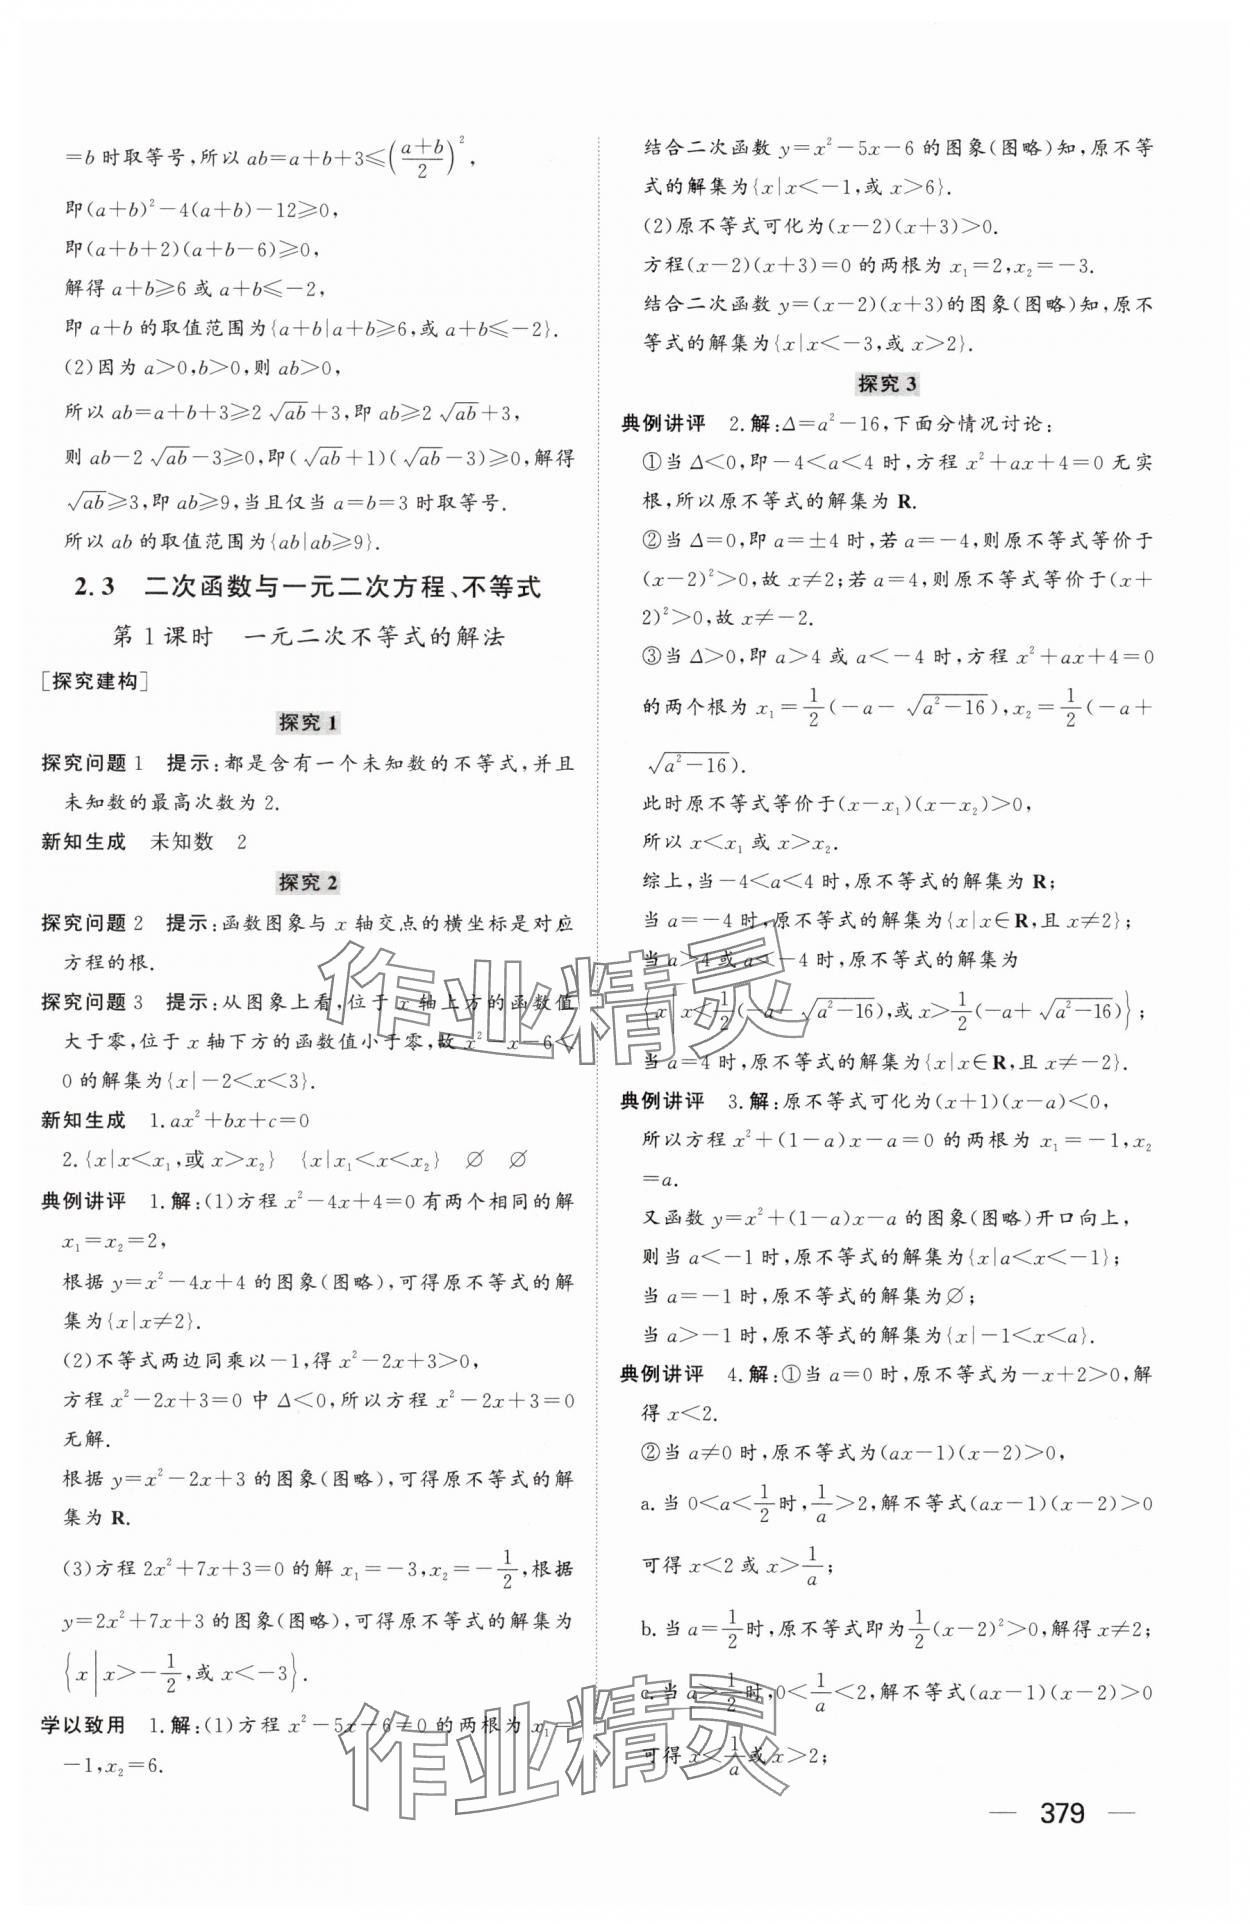 =b 时取等号,所以 ab=a+b+3≤((a+b)/2)²,
即(a+b)²-4(a+b)-12≥0,
即(a+b+2)(a+b-6)≥0,
解得 a+b≥6 或 a+b≤-2,
即 a+b 的取值范围为{a+b|a+b≥6,或 a+b≤-2}.
(2)因为 a>0,b>0,则 ab>0,
所以 ab=a+b+3≥2√ab+3,即 ab≥2√ab+3,
则 ab-2√ab-3≥0,即(√ab+1)(√ab-3)≥0,解得
√ab≥3,即 ab≥9,当且仅当 a=b=3 时取等号.
所以 ab 的取值范围为{ab|ab≥9}.
2.3 二次函数与一元二次方程、不等式
第1课时 一元二次不等式的解法
[探究建构]
探究1
探究问题1 提示:都是含有一个未知数的不等式,并且
未知数的最高次数为 2.
新知生成 未知数 2
探究2
探究问题2 提示:函数图象与 x 轴交点的横坐标是对应
方程的根.
探究问题3 提示:从图象上看,位于 x 轴上方的函数值
大于零,位于 x 轴下方的函数值小于零,故 x²-x-6<
0 的解集为{x|-2<x<3}.
新知生成 1.ax²+bx+c=0
2.{x|x<x₁,或 x>x₂} {x|x₁<x<x₂} ∅ ∅
典例讲评 1.解:(1)方程 x²-4x+4=0 有两个相同的解
x₁=x₂=2,
根据 y=x²-4x+4 的图象(图略),可得原不等式的解
集为{x|x≠2}.
(2)不等式两边同乘以-1,得 x²-2x+3>0,
方程 x²-2x+3=0 中 Δ<0,所以方程 x²-2x+3=0
无解.
根据 y=x²-2x+3 的图象(图略),可得原不等式的解
集为 R.
(3)方程 2x²+7x+3=0 的解 x₁=-3,x₂=-1/2,根据
y=2x²+7x+3 的图象(图略),可得原不等式的解集为
{x|x>-1/2,或 x<-3}.
学以致用 1.解:(1)方程 x²-5x-6=0 的两根为 x₁=
-1,x₂=6.
结合二次函数 y=x²-5x-6 的图象(图略)知,原不等
式的解集为{x|x<-1,或 x>6}.
(2)原不等式可化为(x-2)(x+3)>0.
方程(x-2)(x+3)=0 的两根为 x₁=2,x₂=-3.
结合二次函数 y=(x-2)(x+3)的图象(图略)知,原不
等式的解集为{x|x<-3,或 x>2}.
探究3
典例讲评 2.解:Δ=a²-16,下面分情况讨论:
①当 Δ<0,即-4<a<4 时,方程 x²+ax+4=0 无实
根,所以原不等式的解集为 R.
②当 Δ=0,即 a=±4 时,若 a=-4,则原不等式等价于
(x-2)²>0,故 x≠2;若 a=4,则原不等式等价于(x+
2)²>0,故 x≠-2.
③当 Δ>0,即 a>4 或 a<-4 时,方程 x²+ax+4=0
的两个根为 x₁=1/2(-a-√(a²-16)),x₂=1/2(-a+
√(a²-16)).
此时原不等式等价于(x-x₁)(x-x₂)>0,
所以 x<x₁ 或 x>x₂.
综上,当-4<a<4 时,原不等式的解集为 R;
当 a=-4 时,原不等式的解集为{x|x∈R,且 x≠2};
当 a>4 或 a<-4 时,原不等式的解集为
{x|x<1/2(-a-√(a²-16)),或 x>1/2(-a+√(a²-16))};
当 a=4 时,原不等式的解集为{x|x∈R,且 x≠-2}.
典例讲评 3.解:原不等式可化为(x+1)(x-a)<0,
所以方程 x²+(1-a)x-a=0 的两根为 x₁=-1,x₂
=a.
又函数 y=x²+(1-a)x-a 的图象(图略)开口向上,
则当 a<-1 时,原不等式的解集为{x|a<x<-1};
当 a=-1 时,原不等式的解集为∅;
当 a>-1 时,原不等式的解集为{x|-1<x<a}.
典例讲评 4.解:①当 a=0 时,原不等式为-x+2>0,解
得 x<2.
②当 a≠0 时,原不等式为(ax-1)(x-2)>0,
a.当 0<a<1/2时,1/a>2,解不等式(ax-1)(x-2)>0
可得 x<2 或 x>1/a;
b.当 a=1/2时,原不等式即为1/2(x-2)²>0,解得 x≠2;
c.当 a>1/2时,0<1/a<2,解不等式(ax-1)(x-2)>0
可得 x<1/a或 x>2;
379
作业精灵
作业精灵